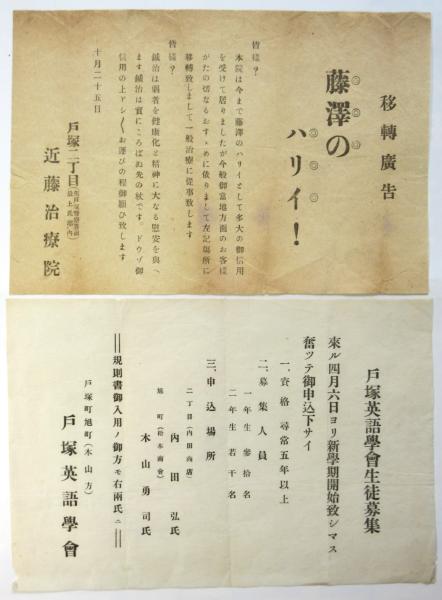 移轉廣告
藤澤の
ハリイ!
皆樣?
本院は今まで藤澤のハリイとして多大の御信用
を受けて居りましたが今般御當地方面のお客樣
がたの切なるおすゝめに依りまして左記場所に
移轉致しまして一般治療に從事致します
皆樣?
鍼治は弱者を健康化し精神に大なる慰安を與へ
ます鍼治は實にころばぬ先の杖です。ドウゾ御
信用の上ドシ〳〵お運びの程御願ひ致します
十月二十五日
戸塚二丁目
近藤治療院
戸塚英語學會生徒募集
來ル四月六日ヨリ新學期開始致シマス
奮ツテ御申込下サイ
一、資格 尋常五年以上
二、募集人員
一年生 參拾名
二年生 若干名
三、申込場所
二丁目(內田商店)
內田弘氏
旭町(松本商會)
木山勇司氏
――規則書御入用ノ御方モ右兩氏ニ――
戸塚町旭町(木山方)
戸塚英語學會